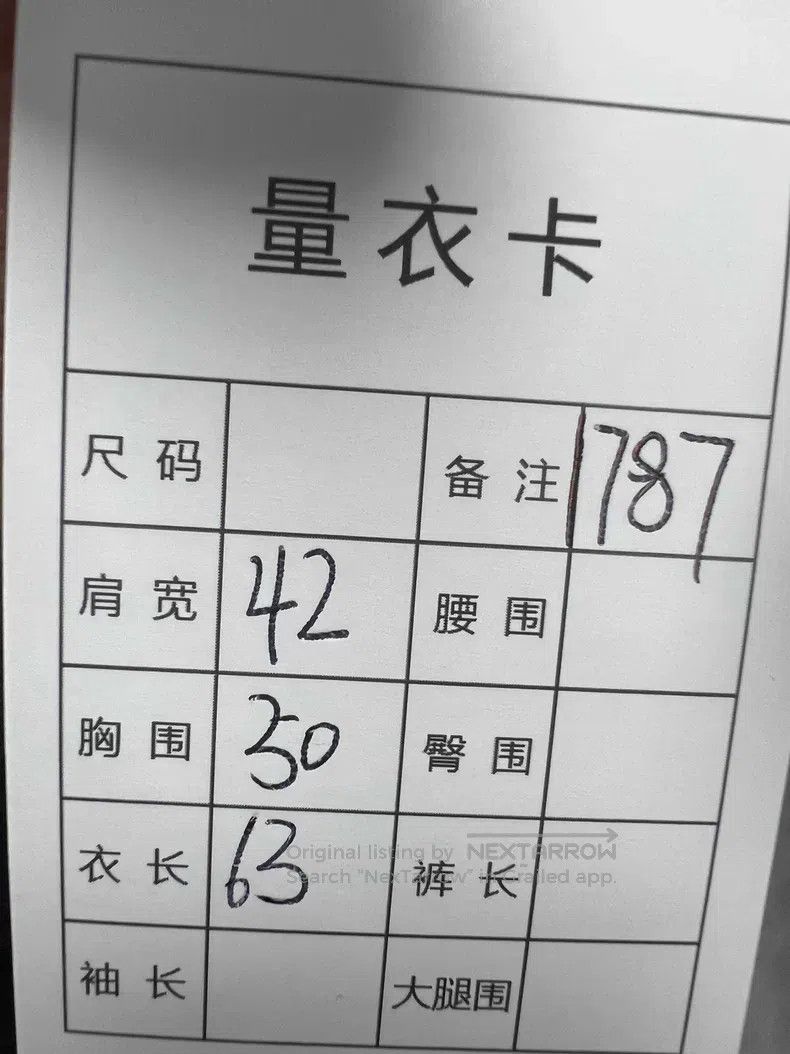 量衣卡
尺码 备注 1787
肩宽 42 腰围
胸围 50 臀围
衣长 63 裤长
Original listing by NEXTARROW
Search "NexTarrow" in Grailed app.
袖长 大腿围